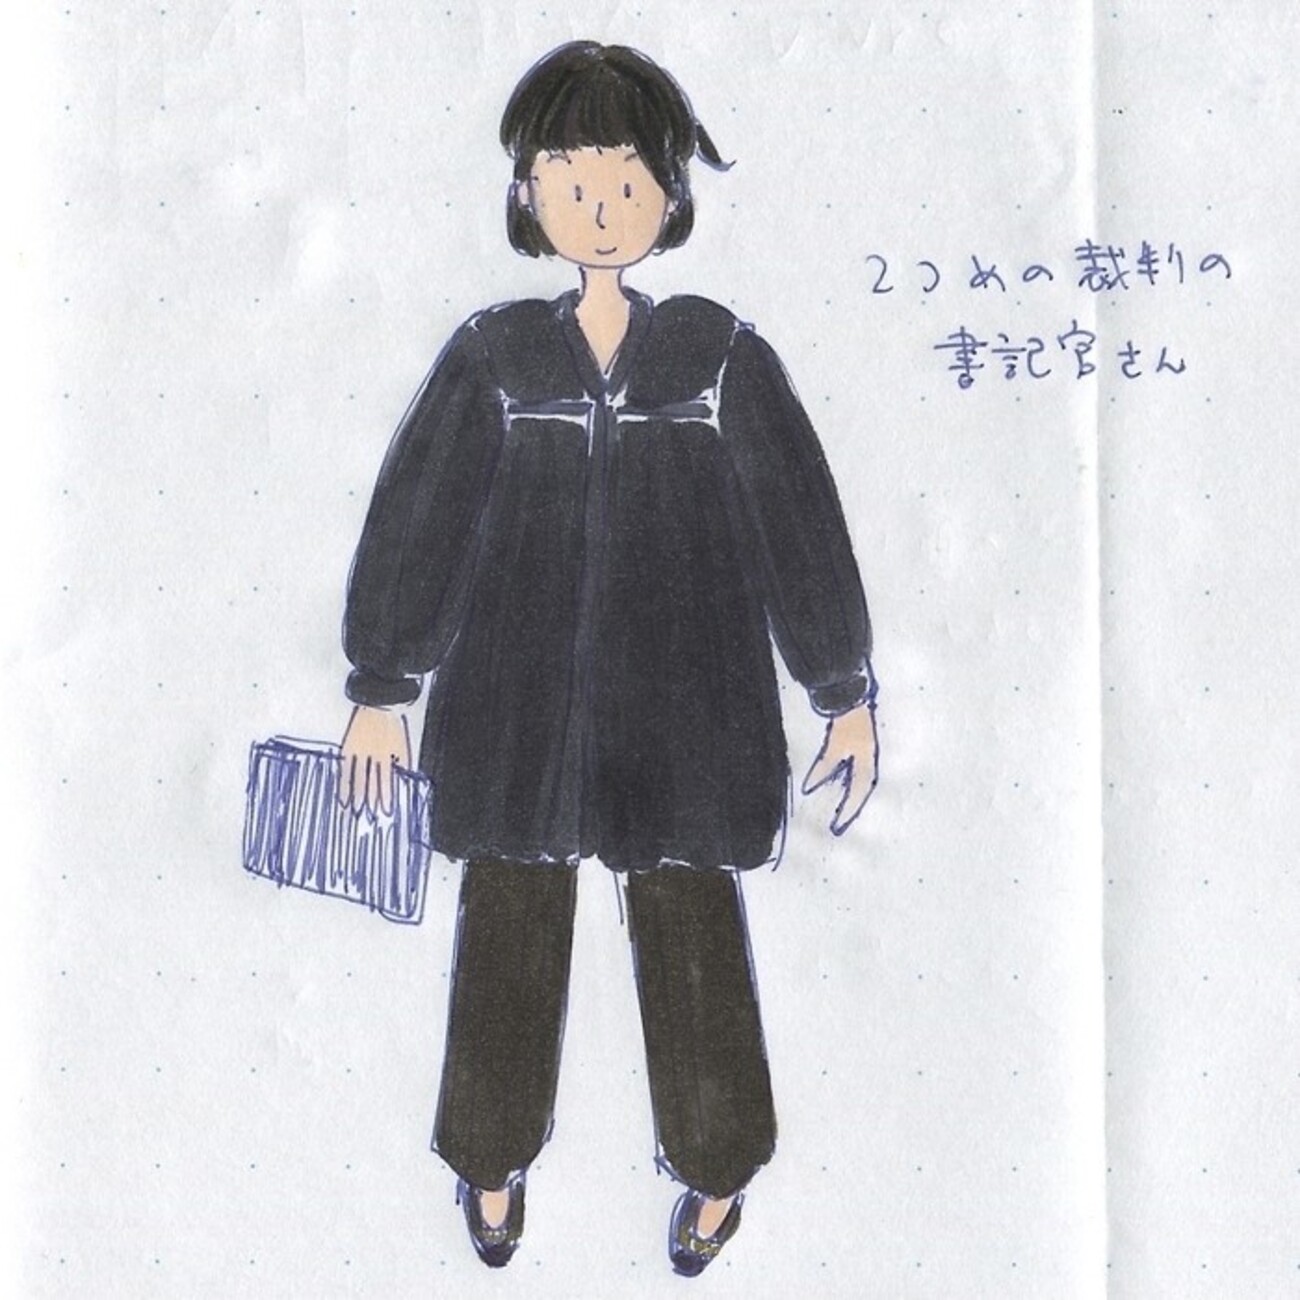 2つめの裁判の
書記官さん